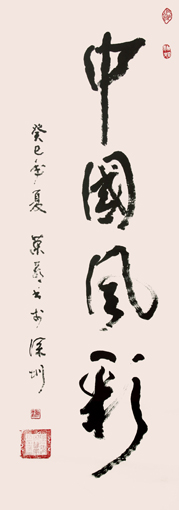 中國风彩
癸巳年夏 書於深圳